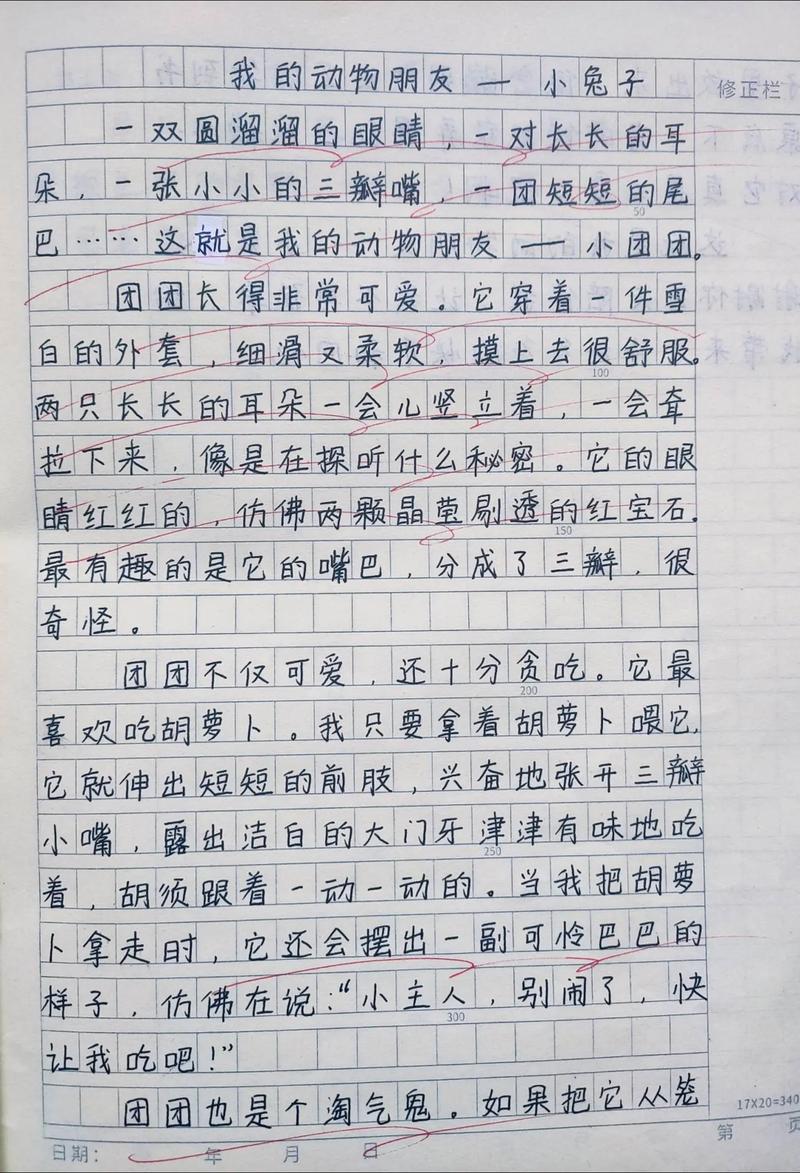 我的动物朋友——小兔子
修正栏
一双圆溜溜的眼睛，一对长长的耳
朵，一张小小的三瓣嘴，一团短短的尾
50
巴……这就是我的动物朋友——小团团。
团团长得非常可爱。它穿着一件雪
白的外套，细滑又柔软，摸上去很舒服。
100
两只长长的耳朵一会儿竖立着，一会耷
拉下来，像是在探听什么秘密。它的眼
睛红红的，仿佛两颗晶莹剔透的红宝石。
150
最有趣的是它的嘴巴，分成了三瓣，很
奇怪。
团团不仅可爱，还十分贪吃。它最
200
喜欢吃胡萝卜。我只要拿着胡萝卜喂它，
它就伸出短短的前肢，兴奋地张开三瓣
小嘴，露出洁白的大门牙津津有味地吃
250
着，胡须跟着一动一动的。当我把胡萝
卜拿走时，它还会摆出一副可怜巴巴的
样子，仿佛在说：“小主人，别闹了，快
300
让我吃吧！”
团团也是个淘气鬼。如果把它从笼
17X20=340
日期： 年 月 日
第 页